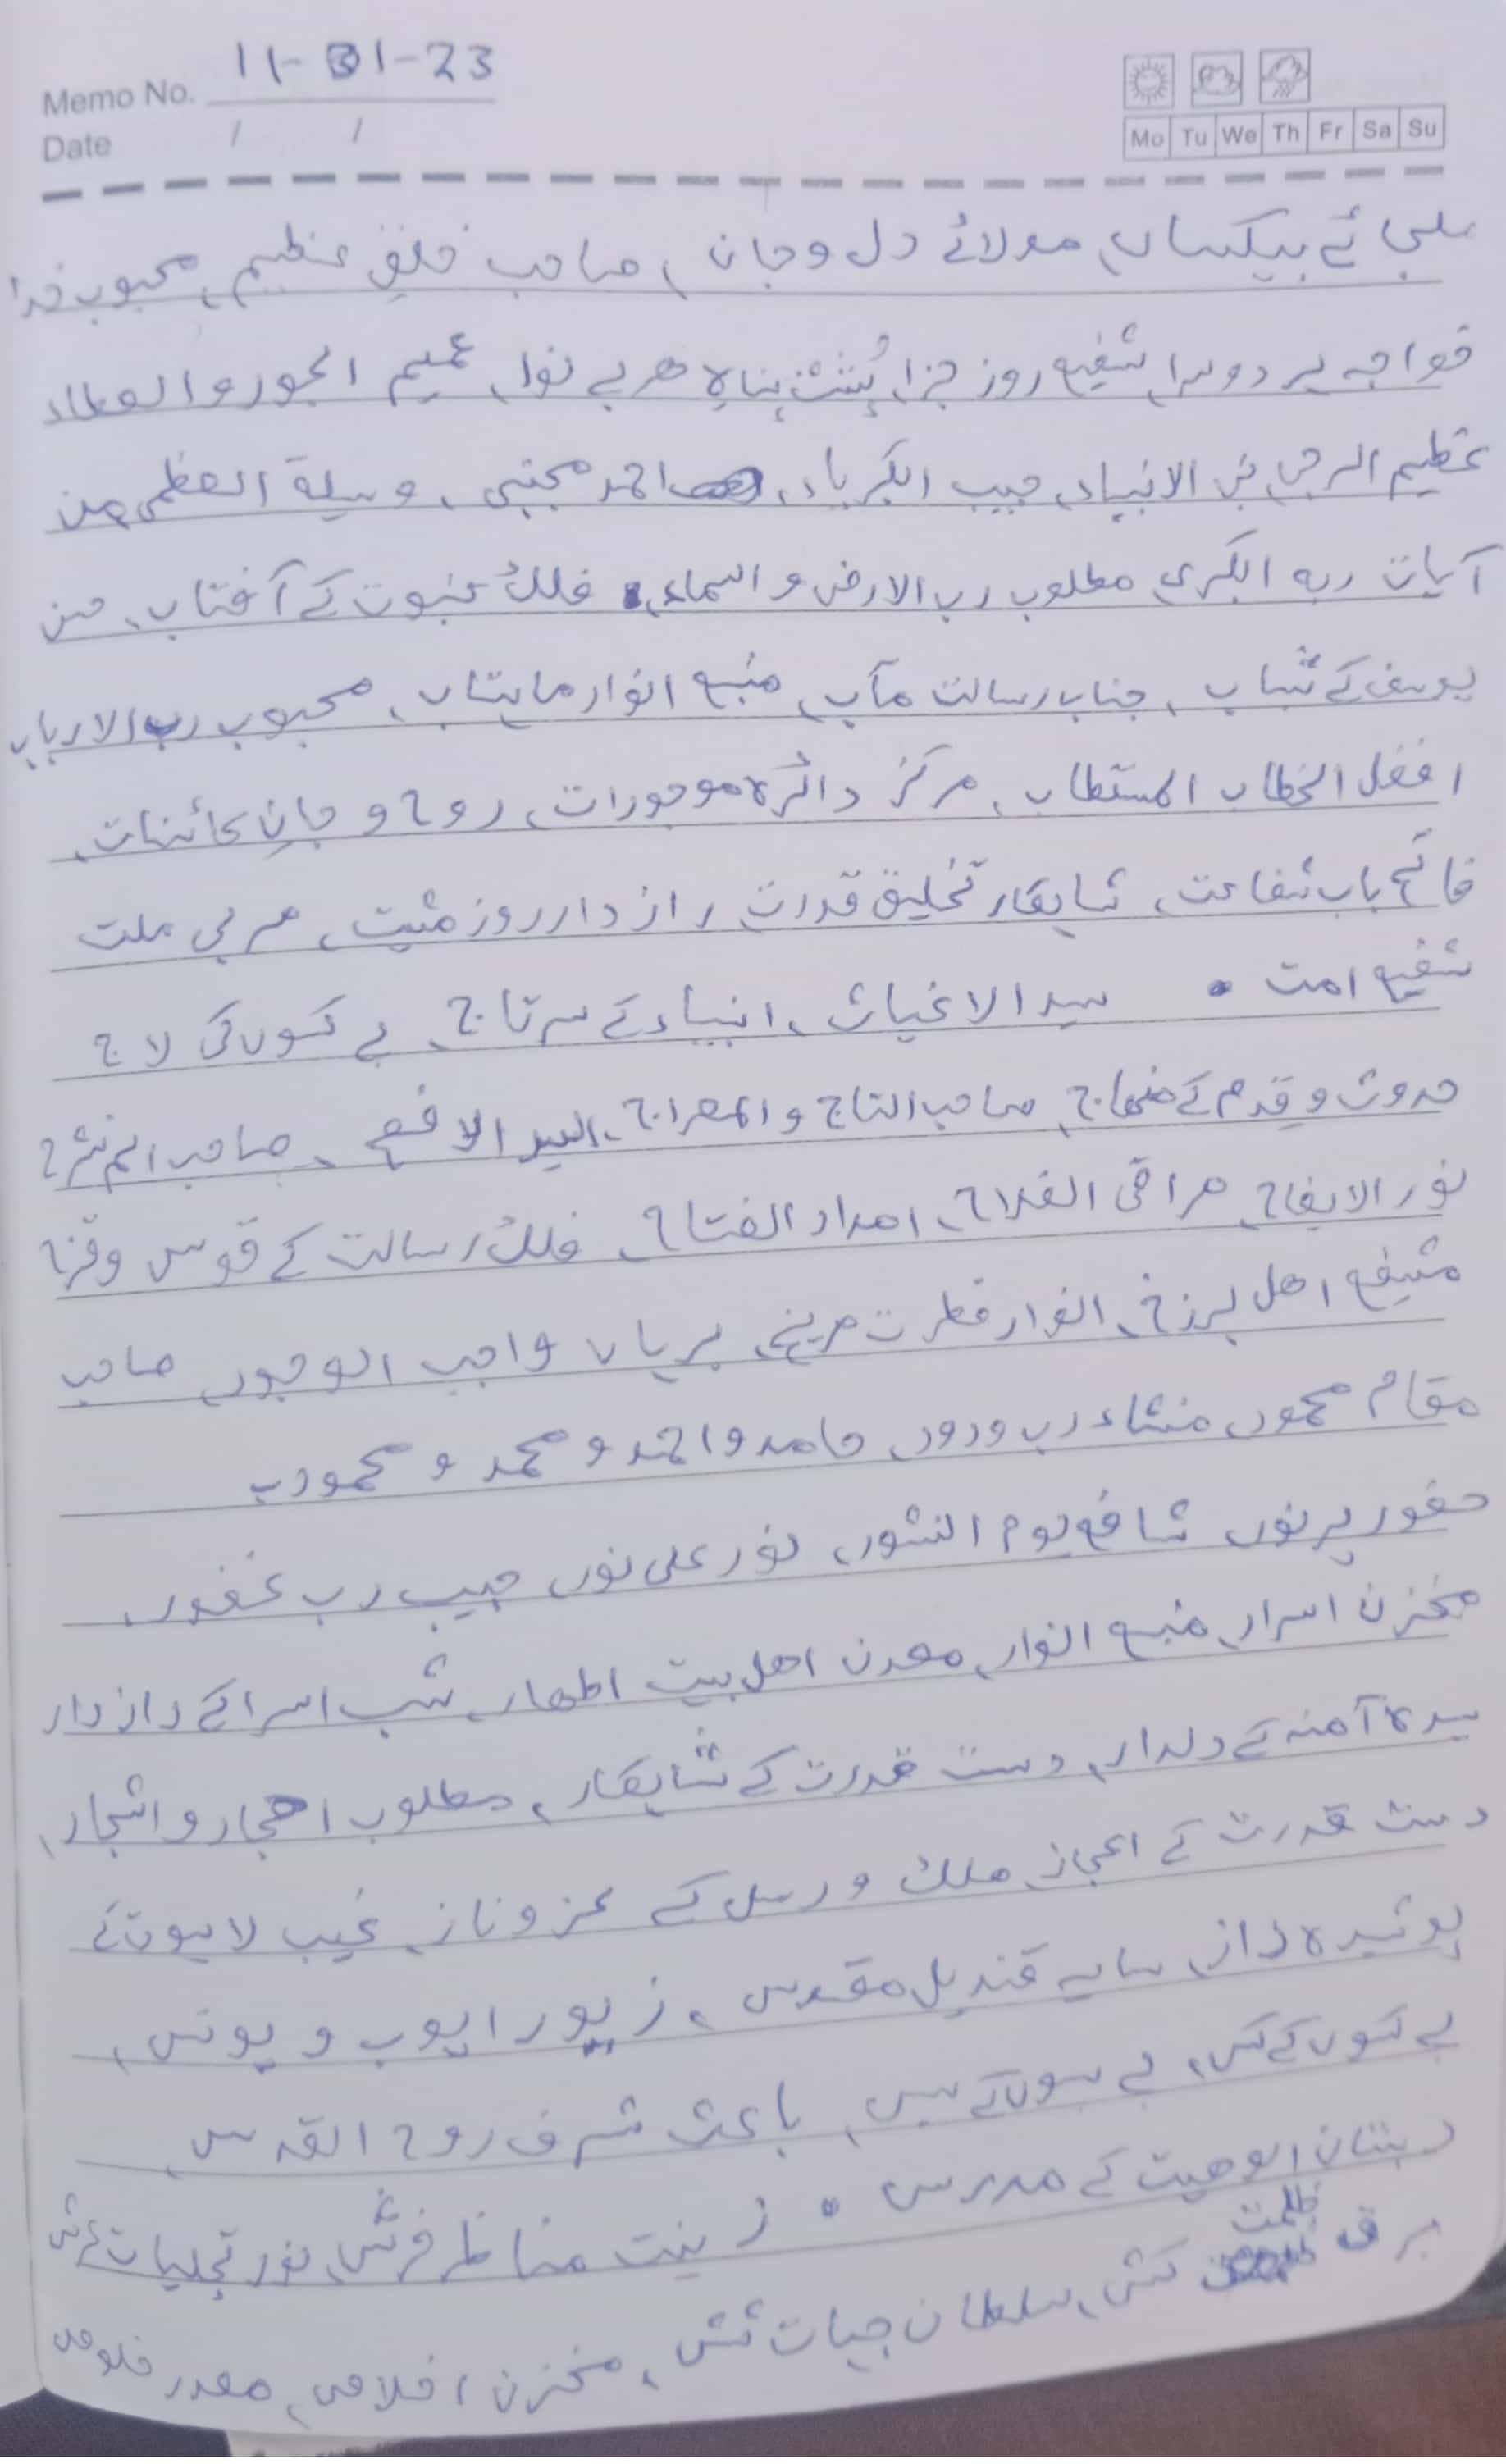 Memo No. 11-01-23
Date / /
Mo Tu We Th Fr Sa Su
ملجائے بیکساں، مولائے دل و جان، صاحب خلقِ عظیم، محبوب خدا
خواجہ ہر دوسرا، شفیع روز جزا، پُشت پناہِ ہر بے نوا، عمیم الجود والعطاء
عظیم الرجی فی الانبیاء، حبیب الکبریاء، احمد مجتبی، وسیلۃ العظمی من
آیات ربہ الکبری مطلوب رب الارض و السماء، فلک نبوت کے آفتاب، حسن
یوسف کے شباب، جناب رسالت مآب، منبع انوار ماہتاب، محبوب رب الارباب
افضل الخطاب المستطاب، مرکز دائرہ موجودات، روح و جانِ کائنات،
فاتح باب شفاعت، شاہکار تخلیق قدرت، راز دار روز مشیت، مربی ملت
شفیع امت • سید الاغیاث، انبیاء کے سرتاج، بے کسوں کی لاج
حدوث و قِدم کے منہاج، صاحب التاج والمعراج، السید الافصح، صاحب الم نشرح
نور الایضاح، مراقی الفلاح، امداد الفتاح، فلک رسالت کے قوس و قزح
مشفع اھل برزخ، انوار فطرت مریخ، برہان واجب الوجود، صاحب
مقام محمود، منشاء رب ودود، حامد و احمد و محمد و محمود،
حضور پرنور، شافع یوم النشور، نور علی نور، حبیب رب غفور،
مخزن اسرار، منبع انوار، معدن اھل بیت اطھار، شب اسرا کے رازدار
سیدہ آمنہ کے دلدار، دست قدرت کے شاہکار، مطلوب احجار و اشجار،
دست قدرت کے اعجاز، ملک و رسل کے عز و ناز، غیب لاہوت کے
پوشیدہ راز، سایہ قندیل مقدس، زیور ایوب و یونس،
بے کسوں کے کس، بے بسوں کے بس، باعث شرف روح القدس،
دبستان الوھیت کے مدرس • زینت مناظر فرش، نور تجلیات عرش
برق ظلمت کش، سلطان حیات بخش، مخزن اخلاص، مصدر خلوص